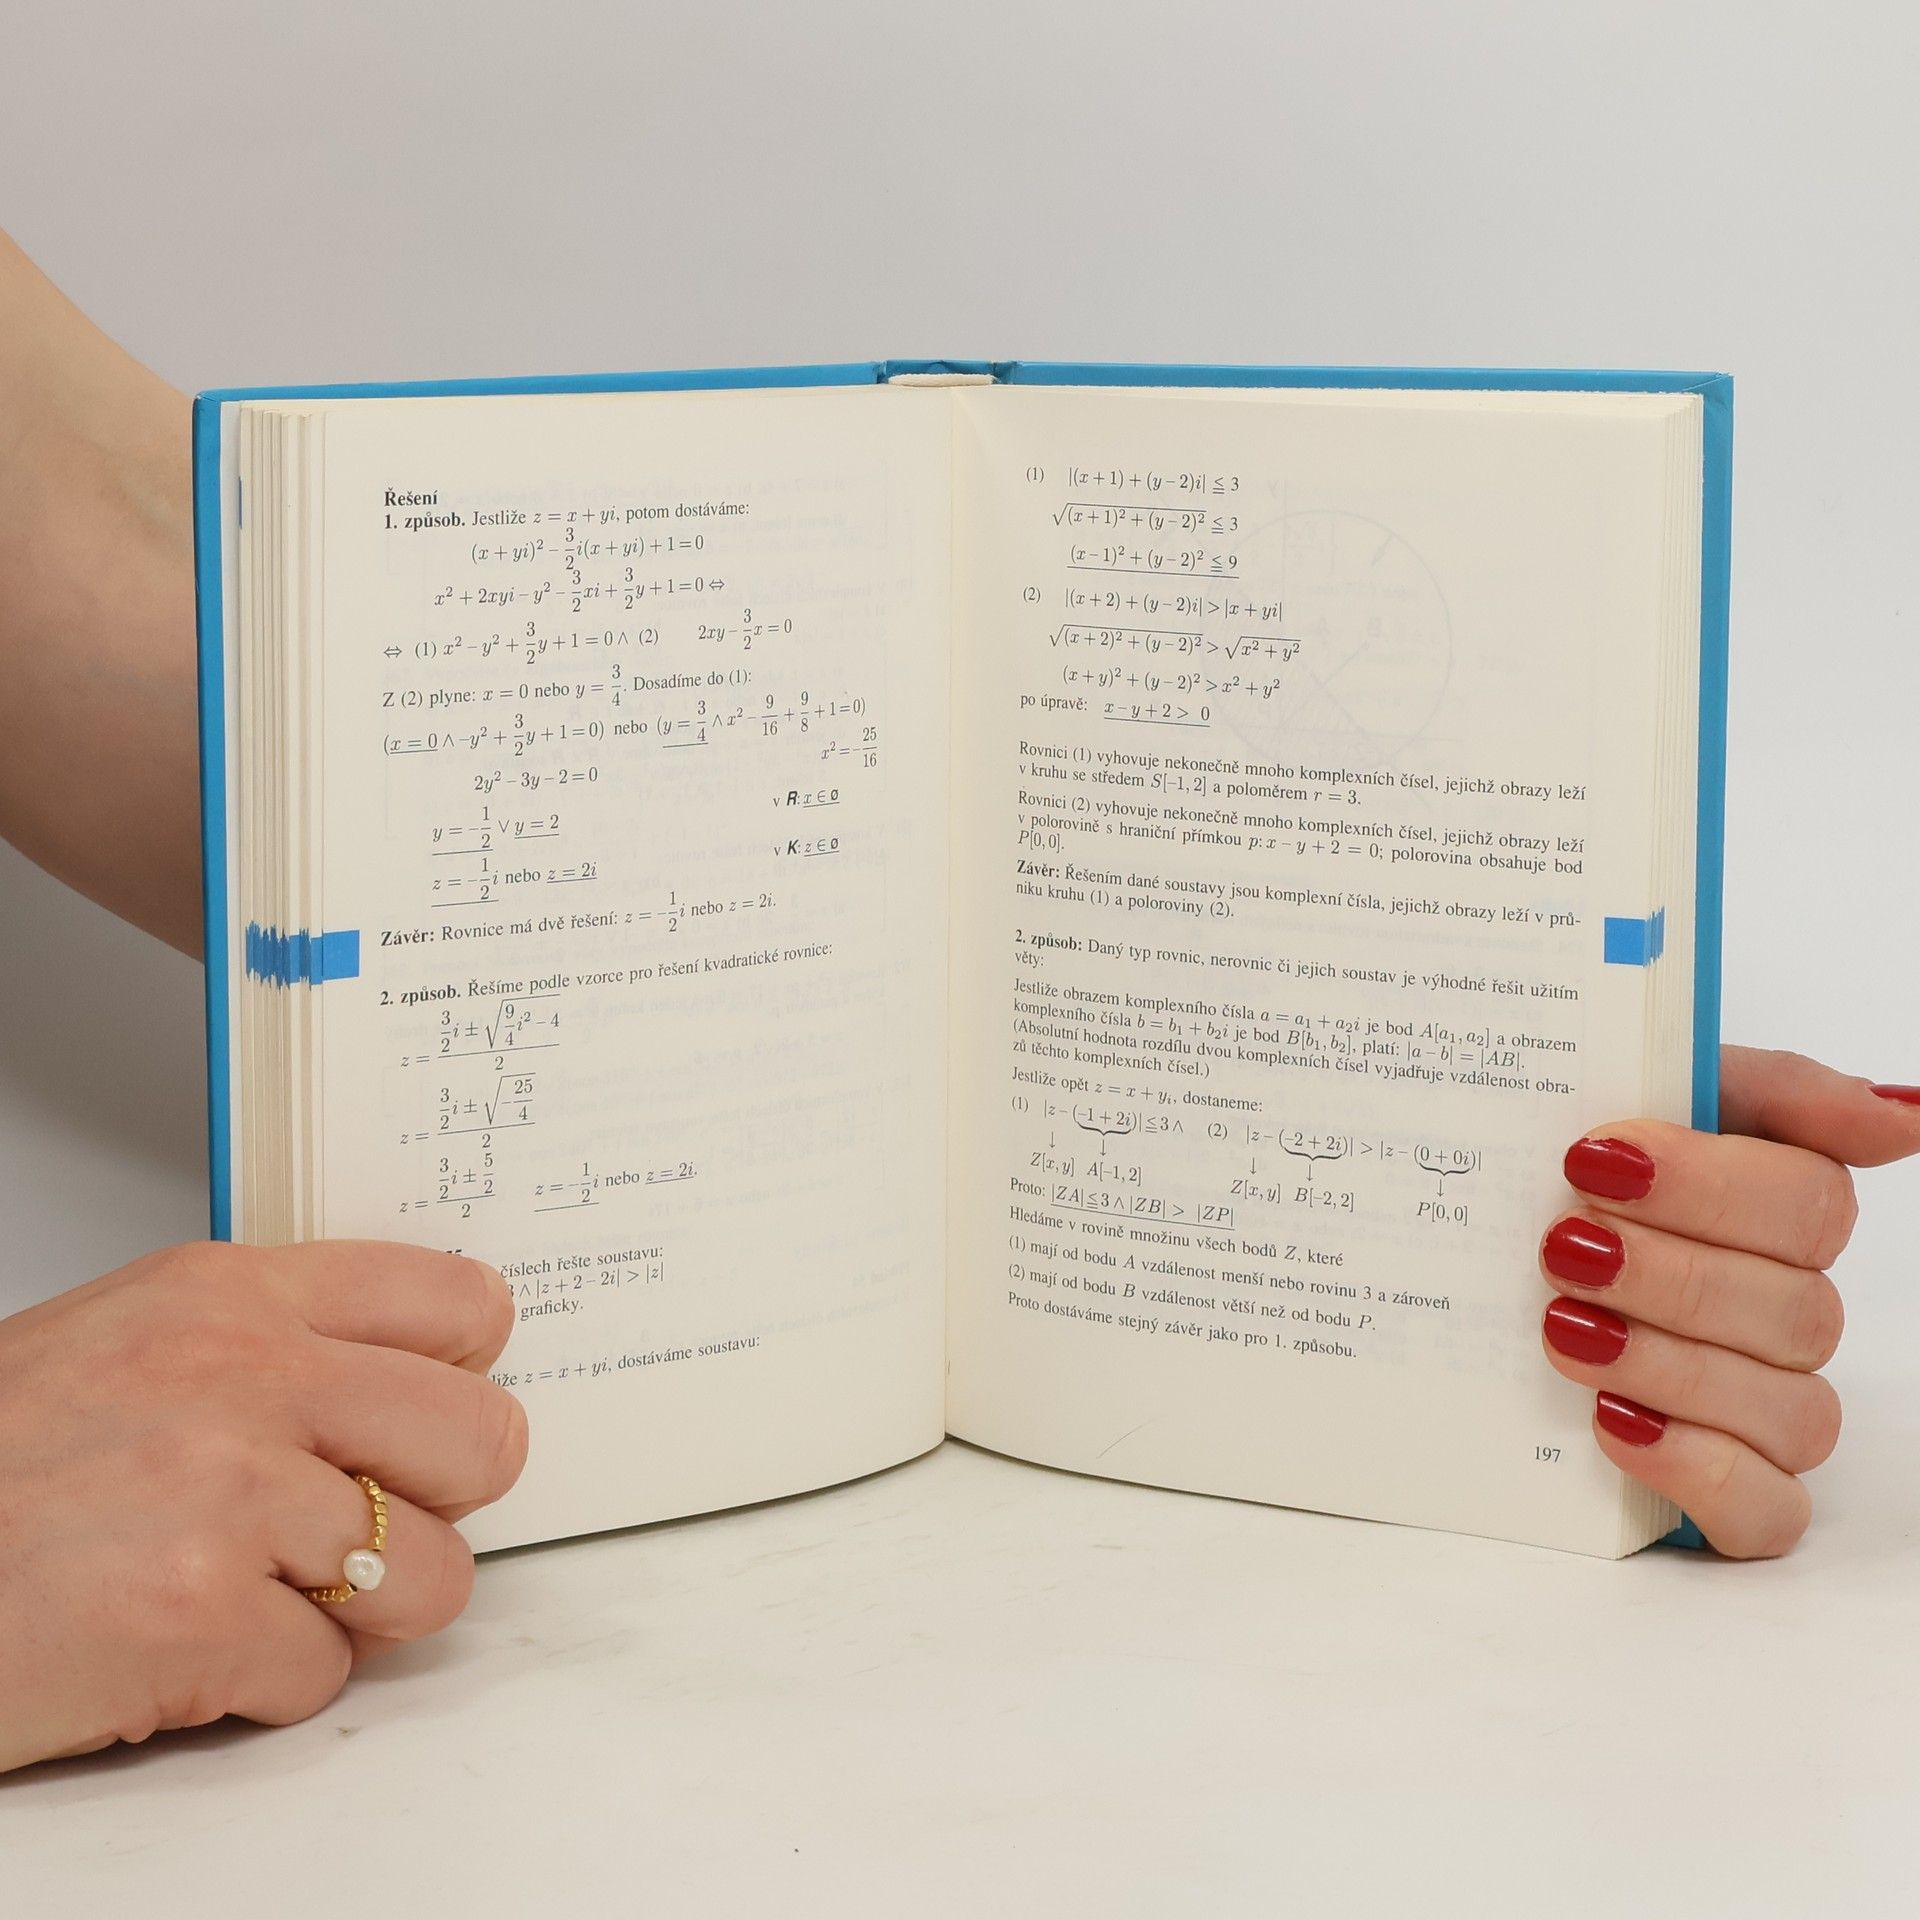 Řešení
1. způsob. Jestliže z = x + yi, potom dostáváme:
(x + yi)² − 3/2 i(x + yi) + 1 = 0
x² + 2xyi − y² − 3/2 xi + 3/2 y + 1 = 0 ⇔
⇔ (1) x² − y² + 3/2 y + 1 = 0 ∧ (2) 2xy − 3/2 x = 0
Z (2) plyne: x = 0 nebo y = 3/4. Dosadíme do (1):
(x = 0 ∧ −y² + 3/2 y + 1 = 0) nebo (y = 3/4 ∧ x² − 9/16 + 9/8 + 1 = 0)
x² = −25/16
2y² − 3y − 2 = 0
v R: x ∈ ø
y = −1/2 ∨ y = 2
v K: z ∈ ø
z = −1/2 i nebo z = 2i
Závěr: Rovnice má dvě řešení: z = −1/2 i nebo z = 2i.
2. způsob. Řešíme podle vzorce pro řešení kvadratické rovnice:
z = (3/2 i ± √(9/4 i² − 4))/2
z = (3/2 i ± √(−25/4))/2
z = (3/2 i ± 5/2)/2 z = −1/2 i nebo z = 2i.
číslech řešte soustavu:
3 ∧ |z + 2 − 2i| > |z|
graficky.
z = x + yi, dostáváme soustavu:
(1) |(x + 1) + (y − 2)i| ≦ 3
√((x + 1)² + (y − 2)²) ≦ 3
(x − 1)² + (y − 2)² ≦ 9
(2) |(x + 2) + (y − 2)i| > |x + yi|
√((x + 2)² + (y − 2)²) > √(x² + y²)
(x + y)² + (y − 2)² > x² + y²
po úpravě: x − y + 2 > 0
Rovnici (1) vyhovuje nekonečně mnoho komplexních čísel, jejichž obrazy leží
v kruhu se středem S[−1, 2] a poloměrem r = 3.
Rovnici (2) vyhovuje nekonečně mnoho komplexních čísel, jejichž obrazy leží
v polorovině s hraniční přímkou p: x − y + 2 = 0; polorovina obsahuje bod
P[0, 0].
Závěr: Řešením dané soustavy jsou komplexní čísla, jejichž obrazy leží v prů-
niku kruhu (1) a poloroviny (2).
2. způsob: Daný typ rovnic, nerovnic či jejich soustav je výhodné řešit užitím
věty:
Jestliže obrazem komplexního čísla a = a₁ + a₂i je bod A[a₁, a₂] a obrazem
komplexního čísla b = b₁ + b₂i je bod B[b₁, b₂], platí: |a − b| = |AB|.
(Absolutní hodnota rozdílu dvou komplexních čísel vyjadřuje vzdálenost obra-
zů těchto komplexních čísel.)
Jestliže opět z = x + yᵢ, dostaneme:
(1) |z − (−1 + 2i)| ≦ 3 ∧ (2) |z − (−2 + 2i)| > |z − (0 + 0i)|
↓ ↓ ↓ ↓ ↓
Z[x, y] A[−1, 2] Z[x, y] B[−2, 2] P[0, 0]
Proto: |ZA| ≦ 3 ∧ |ZB| > |ZP|
Hledáme v rovině množinu všech bodů Z, které
(1) mají od bodu A vzdálenost menší nebo rovinu 3 a zároveň
(2) mají od bodu B vzdálenost větší než od bodu P.
Proto dostáváme stejný závěr jako pro 1. způsobu.
197